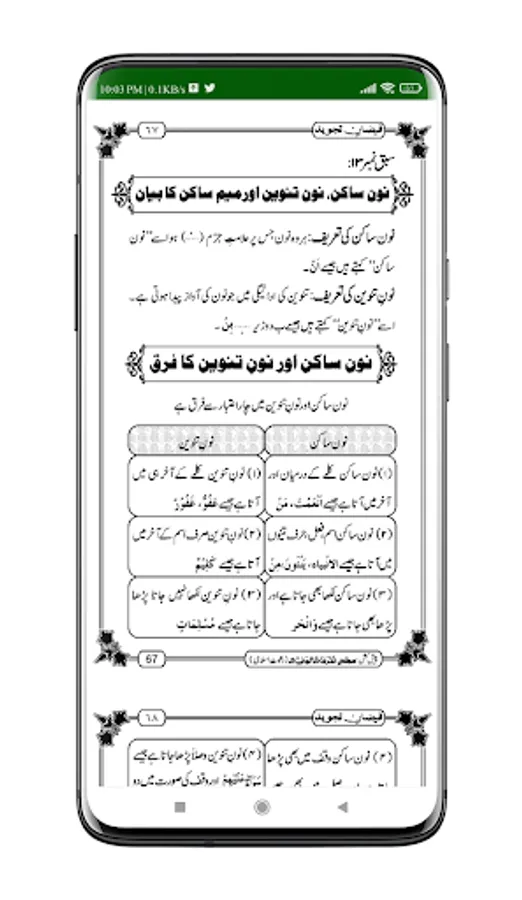 10:03 PM | 0.1KB/s
فیضانِ تجوید ٦٧
سبق نمبر ۱۳:
نون ساکن، نون تنوین اور میم ساکن کا بیان
نون ساکن کی تعریف: ہر وہ نون جس پر علامتِ جزم ہو اسے "نون
ساکن" کہتے ہیں جیسے اَنْ۔
نونِ تنوین کی تعریف: تنوین کی ادائیگی میں جو نون کی آواز پیدا ہوتی ہے۔
اسے "نونِ تنوین" کہتے ہیں جیسے ب دو زیر
نون ساکن اور نونِ تنوین کا فرق
نون ساکن اور نونِ تنوین میں چار اعتبار سے فرق ہے
نون ساکن
نونِ تنوین
(۱) نون ساکن کلمے کے درمیان اور
آخر میں آتا ہے جیسے اَنْعَمْتَ، مَنْ
(۱) نونِ تنوین کلمے کے آخر ہی میں
آتا ہے جیسے عَفُوٌّ، غَفُوْرٌ
(۲) نون ساکن اسم، فعل، حرف تینوں
میں آتا ہے جیسے
(۲) نونِ تنوین صرف اسم کے آخر میں
آتا ہے جیسے
(۳) نون ساکن لکھا بھی جاتا ہے اور
پڑھا بھی جاتا ہے جیسے وَانْحَرْ
(۳) نونِ تنوین لکھا نہیں جاتا پڑھا
جاتا ہے جیسے مُسْلِمٰتٍ
67
فیضانِ تجوید ٦٨
(۴) نون ساکن وقف میں بھی پڑھا
(۴) نونِ تنوین وصلاً پڑھا جاتا ہے جیسے
اور وقف کی صورت میں دو